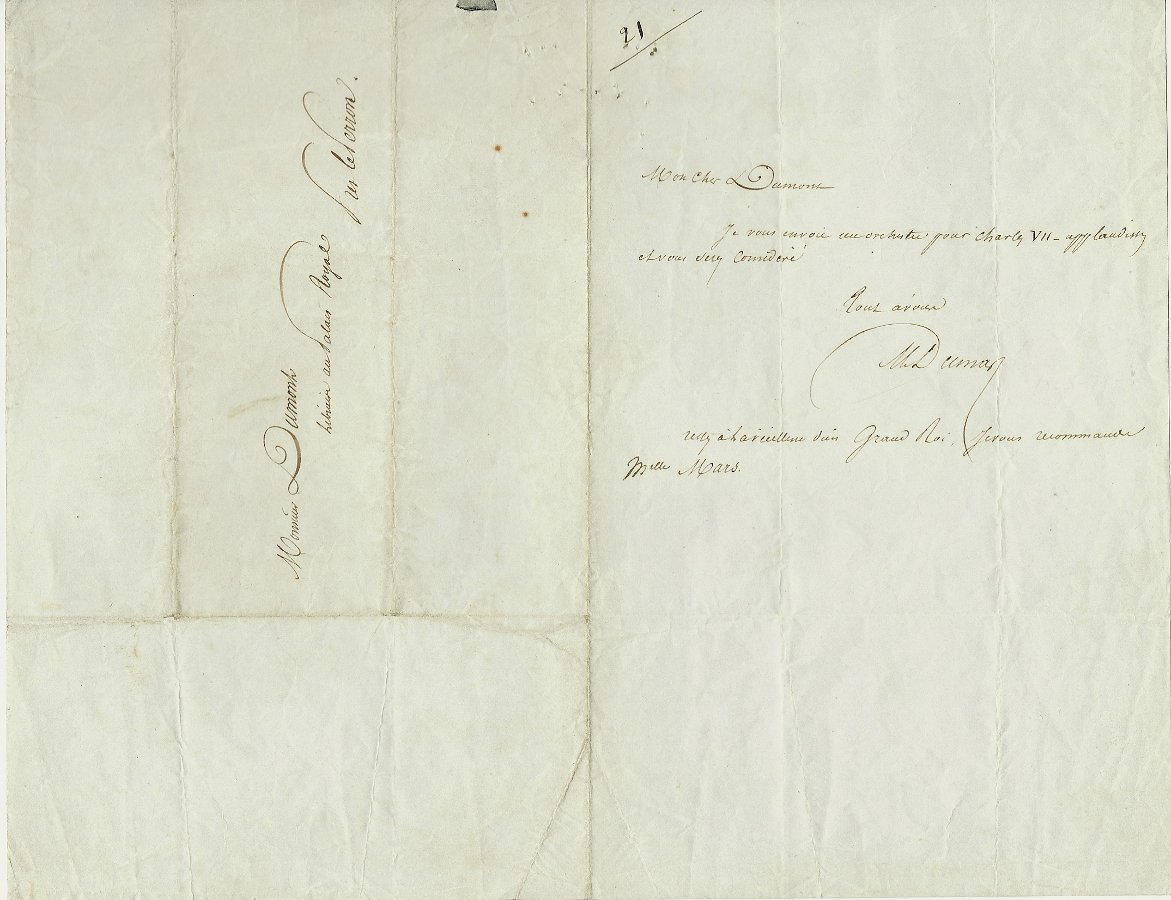 Monsieur Dumont
Libraire au Palais Royal
sur le Perron.
21
Mon cher Dumont
Je vous envoie un orchestre pour Charles VII - applaudissez
et vous serez considéré
Tout à vous
Al Dumas
restez à la vieillesse d'un Grand Roi. Je vous recommande
Melle Mars.